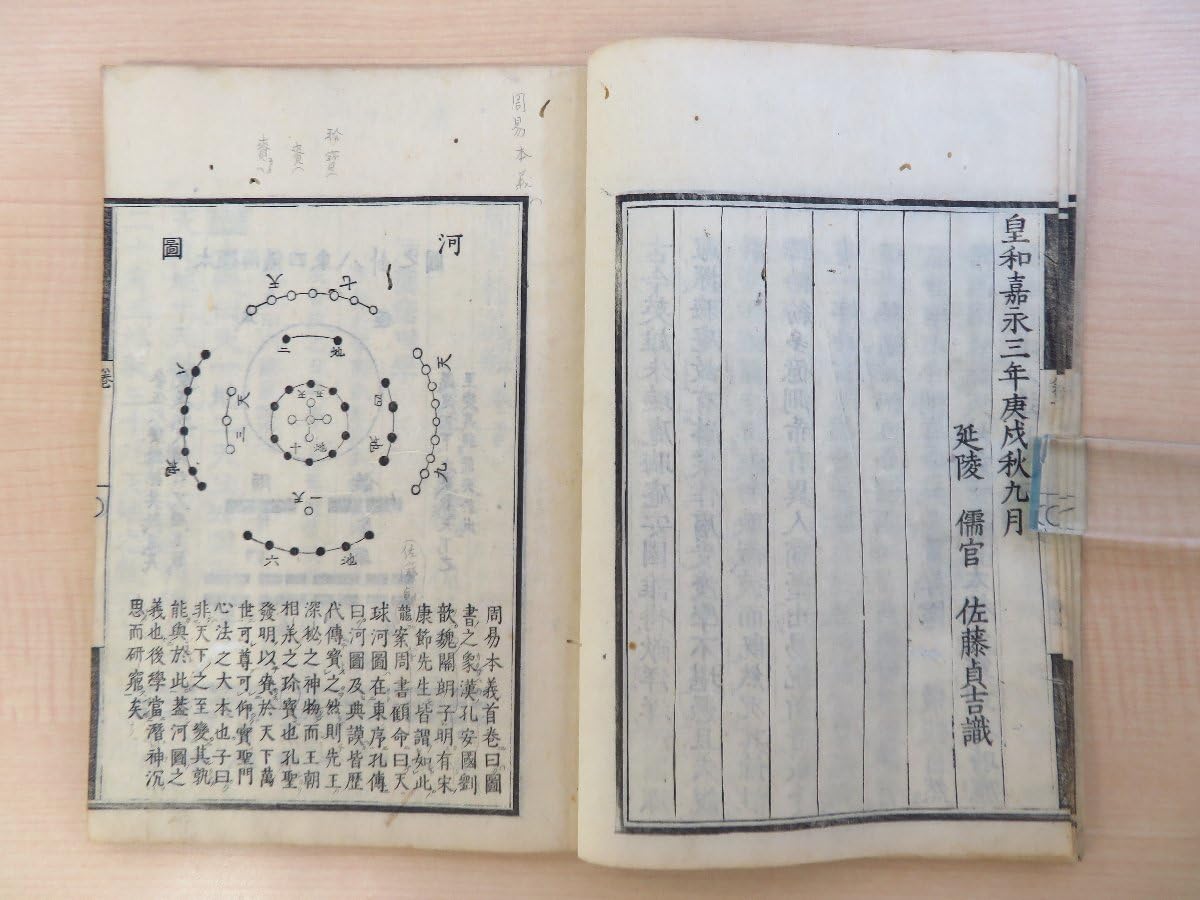 皇和嘉永三年庚戌秋九月
延陵 儒官 佐藤貞吉識
周易本義
河圖
天七
地二
天九
地四
天五
地十
天三
地八
天一
地六
周易本義首卷曰圖
書之象漢孔安國劉
歆魏關朗子明有宋
康節先生皆謂如此
龍案周書顧命曰天
球河圖在東序孔傳
曰河圖及典謨皆歷
代傳寶之然則先王
深秘之神物而王朝
相承之珍寶也孔聖
發明以喩於天下萬
世可尊可仰實聖門
心法之大本也子曰
非天下之至變其孰
能與於此蓋河圖之
義也後學當潛神沉
思而研窮矣
卷一